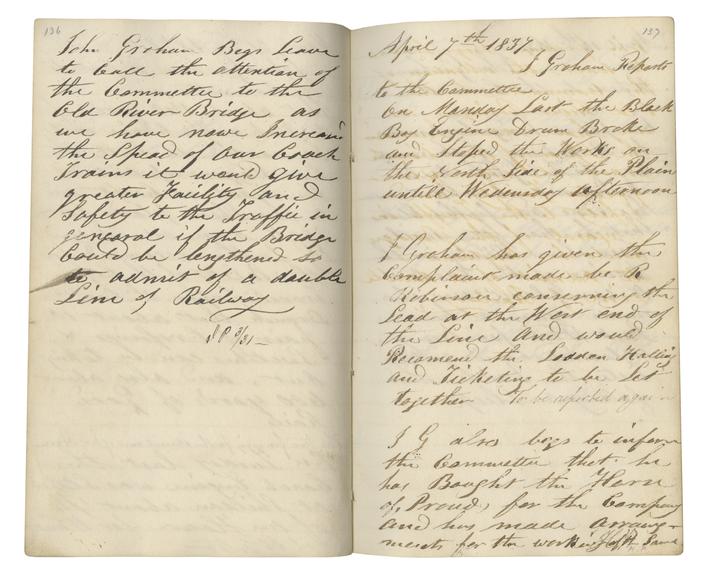 136
John Graham Begs Leave
to Call the attention of
the Committee to the
Old River Bridge as
we have now Increasin
the Speed of our Coach
Trains it would give
greater Facility and
Safety to the Traffic in
genearal if the Bridge
Could be lengthened So
to admit of a double
Line of Railway
137
April 7th 1837
J Graham Reports
to the Committee
On Monday Last the Black
Boy Engine Drum Broke
and Stoped the Works on
the North Side of the Plain
untill Wedensday afternoon
J Graham has given the
Complaint made be R
Robinson conserning the
Lead at the West end of
the Line and would
Recomend the Lodden Halling
and Ticketing to be Let
together To be reported again
J G also begs to inform
the Committee that he
has Bought the Horse
of Proud, for the Company
and has made arrange-
ments for the working of the Same